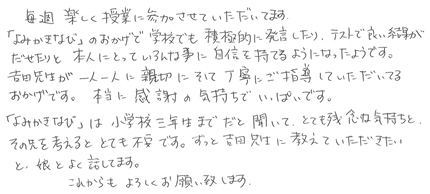 毎週 楽しく授業に参加させていただいてます。
「よみかきなび」のおかげで学校でも積極的に発言したり、テストで良い結果が
だせたりと 本人にとっていろんな事に自信を持てるようになったようです。
吉田先生が一人一人に親切にそして丁寧にご指導していただいてる
おかげです。 本当に感謝の気持ちでいっぱいです。
「よみかきなび」は小学校三年生までだと聞いて、とても残念な気持ちと、
その先を考えるととても不安です。ずっと吉田先生に教えていただきたい
と、娘とよく話してます。
これからもよろしくお願い致します。